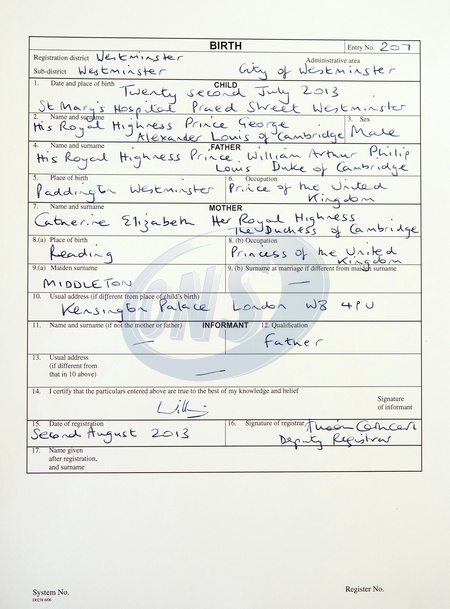 BIRTH
Entry No. 207
Registration district Westminster
Administrative area
Sub-district Westminster
City of Westminster
1. Date and place of birth
CHILD
Twenty second July 2013
St Mary's Hospital Praed Street Westminster
2. Name and surname
His Royal Highness Prince George
Alexander Louis of Cambridge
3. Sex
Male
4. Name and surname
FATHER
His Royal Highness Prince William Arthur Philip
Louis Duke of Cambridge
5. Place of birth
Paddington Westminster
6. Occupation
Prince of the United
Kingdom
7. Name and surname
MOTHER
Catherine Elizabeth Her Royal Highness
The Duchess of Cambridge
8.(a) Place of birth
Reading
8. (b) Occupation
Princess of the United
Kingdom
9.(a) Maiden surname
MIDDLETON
9. (b) Surname at marriage if different from maiden surname
—
10. Usual address (if different from place of child's birth)
Kensington Palace London W8 4PU
11. Name and surname (if not the mother or father)
INFORMANT
—
12. Qualification
Father
13. Usual address
(if different from
that in 10 above)
—
14. I certify that the particulars entered above are true to the best of my knowledge and belief
Signature
of informant
15. Date of registration
Second August 2013
16. Signature of registrar
Deputy Registrar
17. Name given
after registration,
and surname
ONS
System No.
Register No.